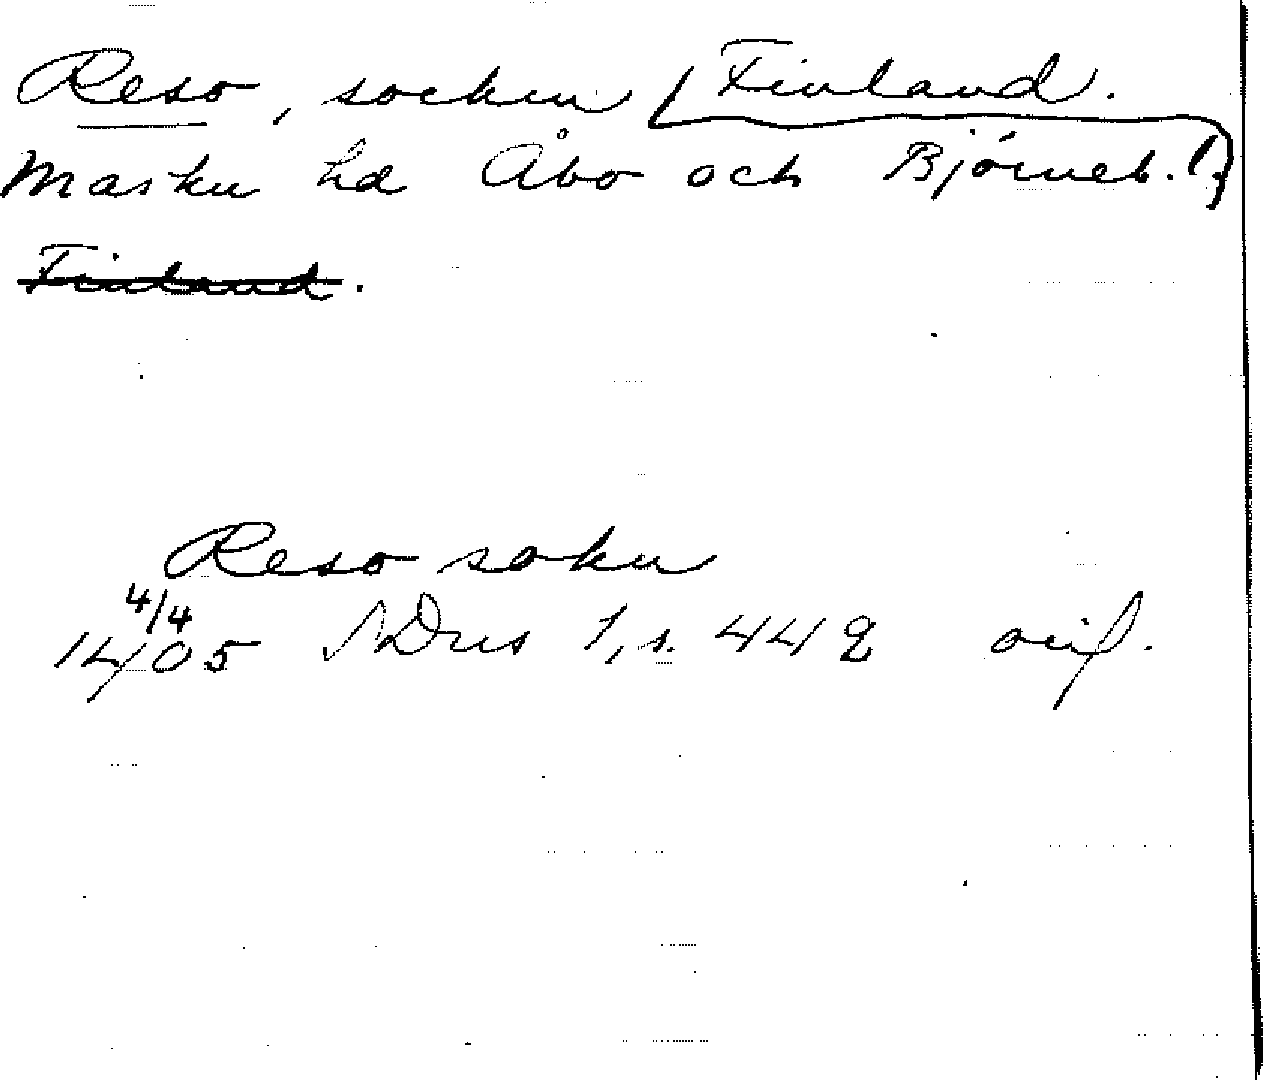 Reso, socken Finland.
Masku hd Åbo och Björneb. l.
Finland.
Reso sokn
4/4
1405 SDns 1, s. 442 orig.